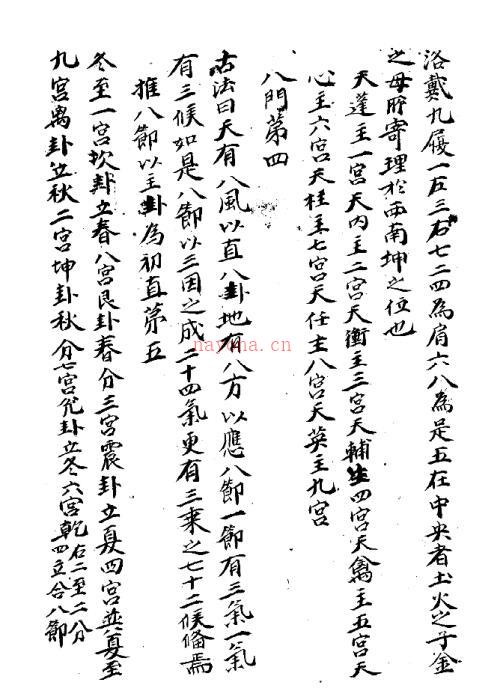 洛戴九履一左三右七二四為肩六八為足五在中央者土火之子金
之母所寄理於西南坤之位也
天蓬主一宮天內主二宮天衝主三宮天輔主四宮天禽主五宮天
心主六宮天柱主七宮天任主八宮天英主九宮
八門第四
古法曰天有八風以直八卦地有八方以應八節一節有三氣一氣
有三候如是八節以三因之成二十四氣更有三乘之七十二候備焉
推八節以主卦為初直第五
冬至一宮坎卦立春八宮艮卦春分三宮震卦立夏四宮巽夏至
九宮离卦立秋二宮坤卦秋分七宮兌卦立冬六宮乾右二至二分四立合八節
nayona.cn